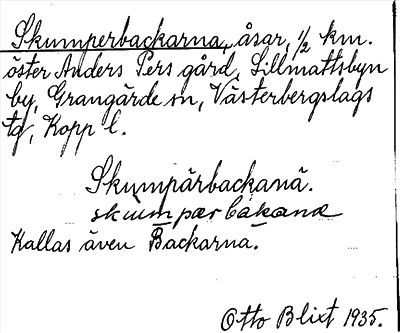 Skumperbackarna, åsar, 1/2 km.
öster Anders Pers gård, Lillmattsbyn
by, Grangärde sn, Västerbergslags
tg, Kopp l.
Skumpärbackanä.
skùmpærbàkana
Kallas även Backarna.
Otto Blixt 1935.